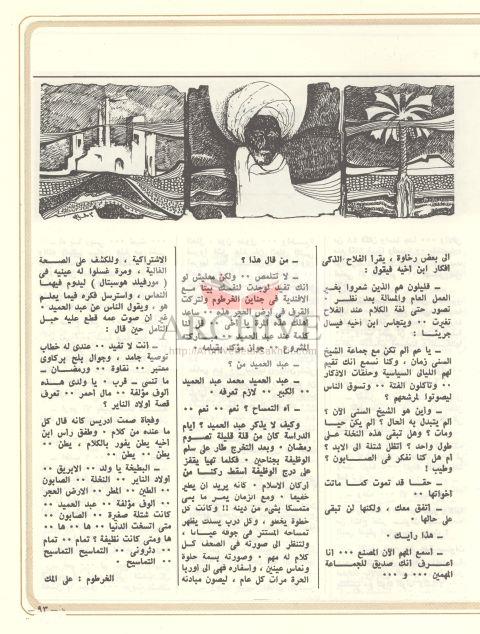 الى بعض رخاوة ، يقرأ الفلاح الذكى
أفكار ابن أخيه فيقول :
ـ قليلون هم الذين شعروا بغير
العمل العام والمسالة بعد نظر ٠
تصور حتى لغة الكلام عند الفلاح
تغيرت ٠٠ ويتجاسر ابن أخيه فيسأل
جريئا :
ـ يا عم ألم تكن مع جماعة الشيخ
السنى زمان ، وكنا نسمع أنك تقيم
لهم الليالى السياسية وحلقات الأذكار
٠٠ وتأكلون الفتة ٠٠ وتسوق الناس
ليصوتوا لمرشحهم ؟
ـ وأين هو الشيخ السنى الآن ؟
ألم يتبدل به الحال ؟ ألم يكن حيا
ومات ؟ وهل تبقى هذه النخلة على
طول واحد ؟ أتظل شتلة الى الأبد ؟
أم هل كنا نفكر فى الصابون ؟
وطيب !
ـ حقا قد تموت كما ماتت
أخواتها ٠٠
ـ أتفق معك ، ولكنها لن تبقى
على حالها ٠
ـ هذا رأيك ٠
ـ أسمع المهم الآن المصنع ٠٠٠ أنا
أعرف أنك صديق للجماعة
المهمين ٠٠٠ و ٠٠٠
ـ من قال هذا ؟
ـ لا تتملص ٠٠ ولكن معليش لو
انك تفيد لوجدت لنفسك بيتا مع
الأفندية فى جناين الخرطوم ولتركت
القرف فى أرض الحجر هذه ٠٠ ساعد
كلمة عند عبد الحميد
المشروع ٠٠ جوال مؤكد يقلب
ـ عبد الحميد من ؟
ـ عبد الحميد محمد عبد الحميد
الكبير ٠٠ لازم تعرفه ٠
ـ آه التمساح ؟ نعم ٠٠ نعم ٠٠
وكيف لا يذكر عبد الحميد ؟ أيام
الدراسة كان من قلة قليلة تصوم
رمضان ٠ وبعد التخرج طار على سلم
الوظيفة بجناحين ٠ فكلما تهيأ يقفز
على درج الوظيفة أسقط ركنا من
أركان الاسلام ٠ كأنه يريد أن يطير
خفيفا ٠ ومع الزمان يمر ما بقى
متمسكا بشىء من دينه !! وكانت كل
خطوة يخطو ، وكل درب يسلك يظهر
تمساحه المستتر فى جوفه عيانا ،
ولتنظر الى صورته فى الصحف كل
كلام له مهم ، وصورته بسمة حلوة
ونعاس عينين ، وأسفاره فهى الى أوربا
الحرة مرات كل عام ، ليصون مبادئه
الاشتراكية ، وللكشف على الصحة
الغالية ، ومرة غسلوا له عينيه فى
( مورفيلد هوسبتال ) ليدوم فيهما
النعاس ، واسترسل فكره فيما يعلم
هو ، ويقول الناس عن عبد الحميد ٠
غير أن صوت عمه قطع عليه حبل
التأمل حين قال :
ـ أنت لا تفيد ٠٠ عندى له خطاب
توصية جامد ، وجوال بلح بركاوى
معتبر ٠٠ نقاوة ٠٠ ورمضان ـ
ما تنسى ـ قرب ٠ يا ولدى هذه
ألوف مؤلفة ٠٠ مال أحمر ٠٠ تعرف
قصة أولاد الناير ؟
وفجأة صمت ادريس كأنه قال كل
ما عنده من كلام ٠ وطفق رأس ابن
أخيه يطن يفور بالكلام ، يطن ٠٠
يطن ٠٠ يطن ٠٠
ـ البطيخة يا ولد ٠٠ الابريق ٠٠
أولاد الناير ٠٠ النخلة ٠٠ الصابون
٠٠ الطين ٠٠ المطر ٠٠ الأرض الحجر
٠٠ ألوف مؤلفة ٠٠ عبد الحميد ٠٠
كانت شتلة صغيرة ٠٠ الصابون ٠٠
متى اتسخت الدنيا ٠٠ ها ٠٠ ها ٠٠
ها ومتى كانت نظيفة ؟ تمام ٠٠ تمام
٠٠ دثرونى ٠٠ التماسيح التماسيح
٠٠ التماسيح ٠
الخرطوم : على المك
ـ ٩٣ ـ
ARCHIVE